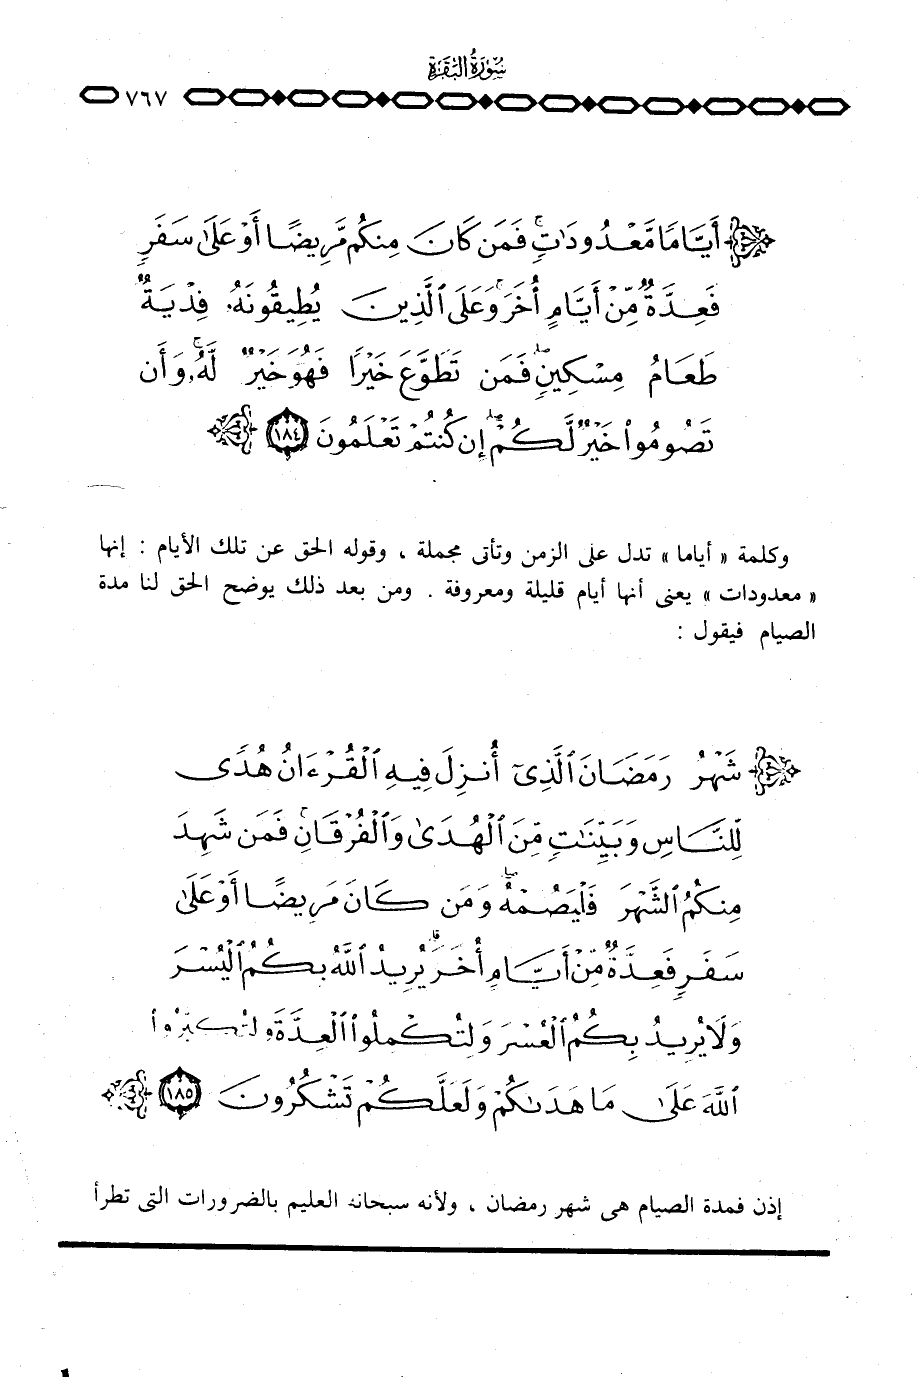 سُورَةُ الْبَقَرَةِ
٧٦٧
أَيَّامًا مَّعْدُودَاتٍ ۚ فَمَن كَانَ مِنكُم مَّرِيضًا أَوْ عَلَىٰ سَفَرٍ
فَعِدَّةٌ مِّنْ أَيَّامٍ أُخَرَ ۚ وَعَلَى ٱلَّذِينَ يُطِيقُونَهُۥ فِدْيَةٌ
طَعَامُ مِسْكِينٍ ۖ فَمَن تَطَوَّعَ خَيْرًا فَهُوَ خَيْرٌ لَّهُۥ ۚ وَأَن
تَصُومُوا۟ خَيْرٌ لَّكُمْ ۖ إِن كُنتُمْ تَعْلَمُونَ ١٨٤
وكلمة « أياما » تدل على الزمن وتأتى مجملة ، وقوله الحق عن تلك الأيام : إنها
« معدودات » يعنى أنها أيام قليلة ومعروفة . ومن بعد ذلك يوضح الحق لنا مدة
الصيام فيقول :
شَهْرُ رَمَضَانَ ٱلَّذِىٓ أُنزِلَ فِيهِ ٱلْقُرْءَانُ هُدًى
لِّلنَّاسِ وَبَيِّنَٰتٍ مِّنَ ٱلْهُدَىٰ وَٱلْفُرْقَانِ ۚ فَمَن شَهِدَ
مِنكُمُ ٱلشَّهْرَ فَلْيَصُمْهُ ۖ وَمَن كَانَ مَرِيضًا أَوْ عَلَىٰ
سَفَرٍ فَعِدَّةٌ مِّنْ أَيَّامٍ أُخَرَ ۗ يُرِيدُ ٱللَّهُ بِكُمُ ٱلْيُسْرَ
وَلَا يُرِيدُ بِكُمُ ٱلْعُسْرَ وَلِتُكْمِلُوا۟ ٱلْعِدَّةَ وَلِتُكَبِّرُوا۟
ٱللَّهَ عَلَىٰ مَا هَدَىٰكُمْ وَلَعَلَّكُمْ تَشْكُرُونَ ١٨٥
إذن فمدة الصيام هى شهر رمضان ، ولأنه سبحانه العليم بالضرورات التى تطرأ